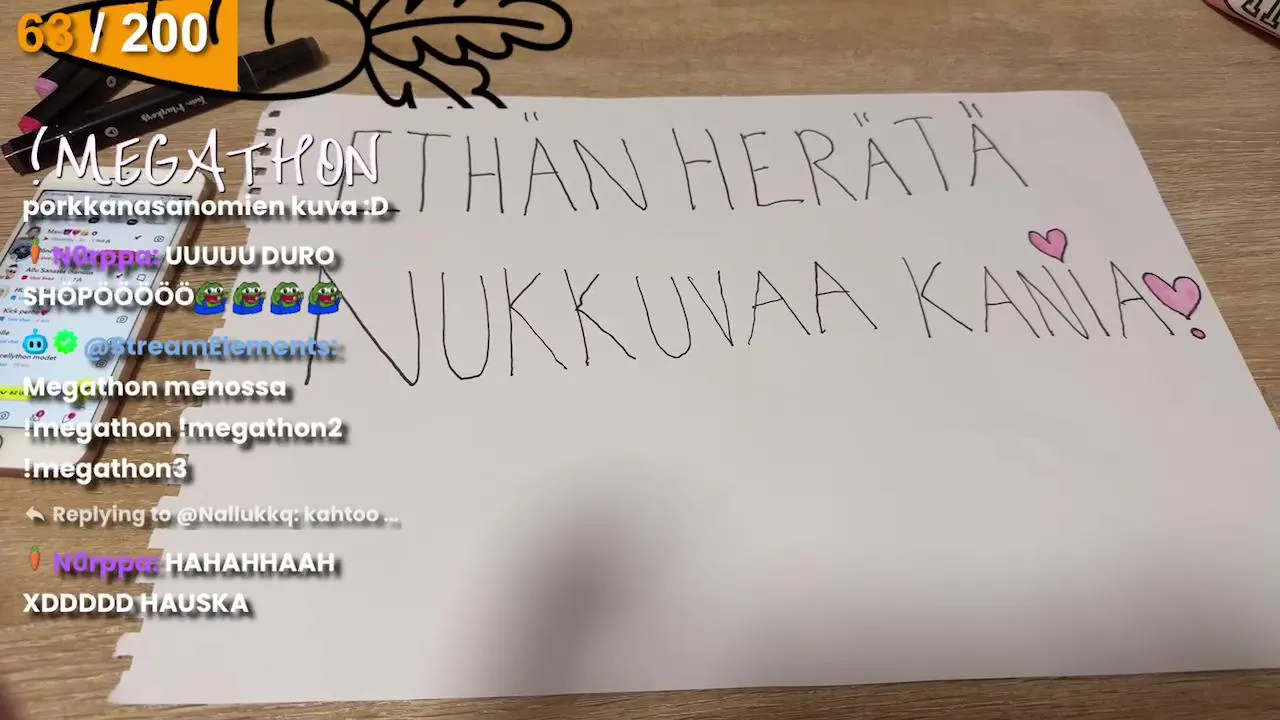 63 / 200
!MEGATHON
ETHÄN HERÄTÄ
NUKKUVAA KANIA!
porkkanasanomien kuva :D
N0rppa: UUUUU DURO
SHÖPÖÖÖÖÖ
@StreamElements:
Megathon menossa
!megathon !megathon2
!megathon3
Replying to @Nallukkq: kahtoo ...
N0rppa: HAHAHHAAH
XDDDDD HAUSKA